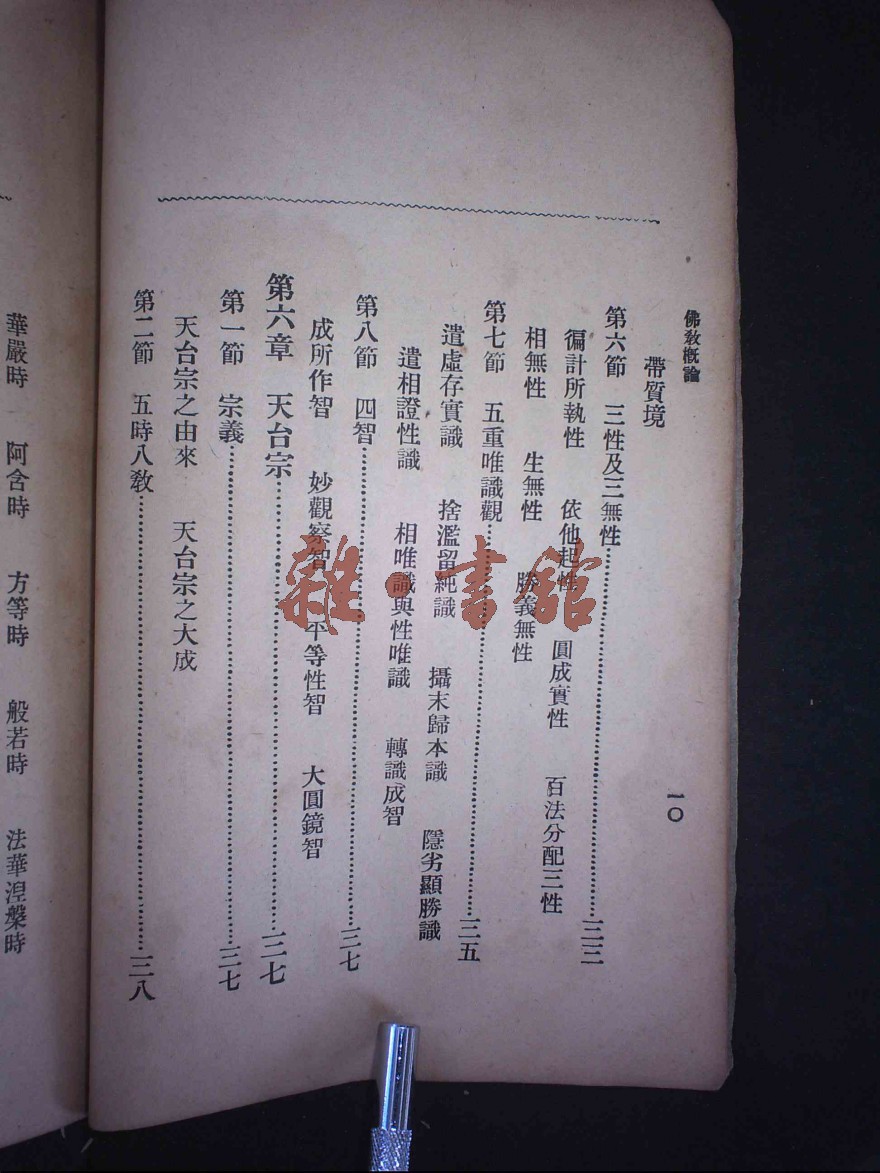 佛敎概論
一〇
帶質境
第六節　三性及三無性……三三
徧計所執性　依他起性　圓成實性　百法分配三性
相無性　生無性　勝義無性
第七節　五重唯識觀……三五
遣虛存實識　捨濫留純識　攝末歸本識　隱劣顯勝識
遣相證性識　相唯識與性唯識　轉識成智
第八節　四智……三七
成所作智　妙觀察智　平等性智　大圓鏡智
第六章　天台宗……三七
第一節　宗義……三七
天台宗之由來　天台宗之大成
第二節　五時八敎……三八
華嚴時　阿含時　方等時　般若時　法華湼槃時
雜·書館